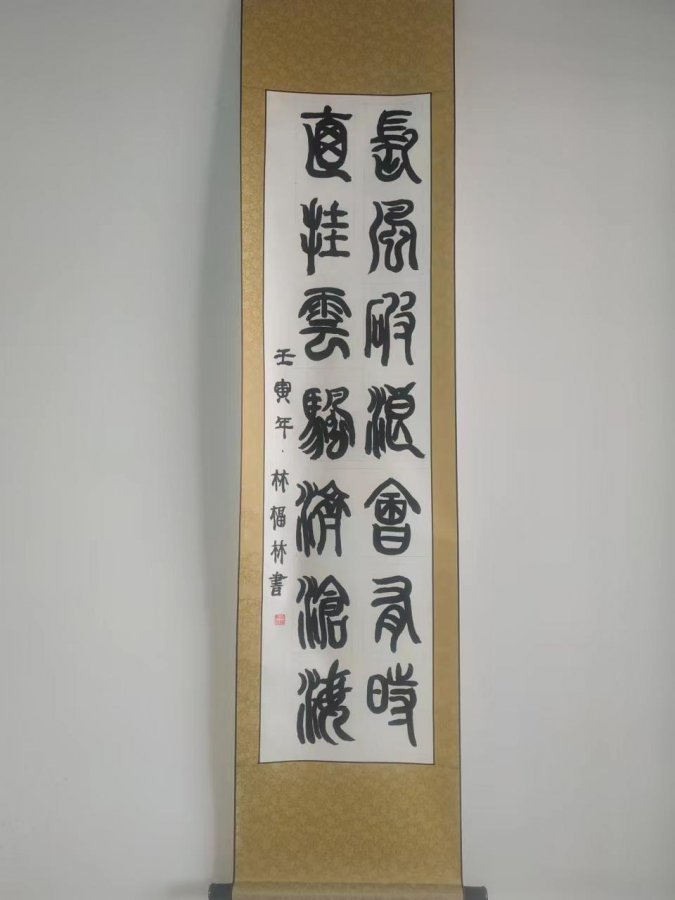 長風破浪會有時
直挂雲颿濟滄海
壬寅年·林福林書